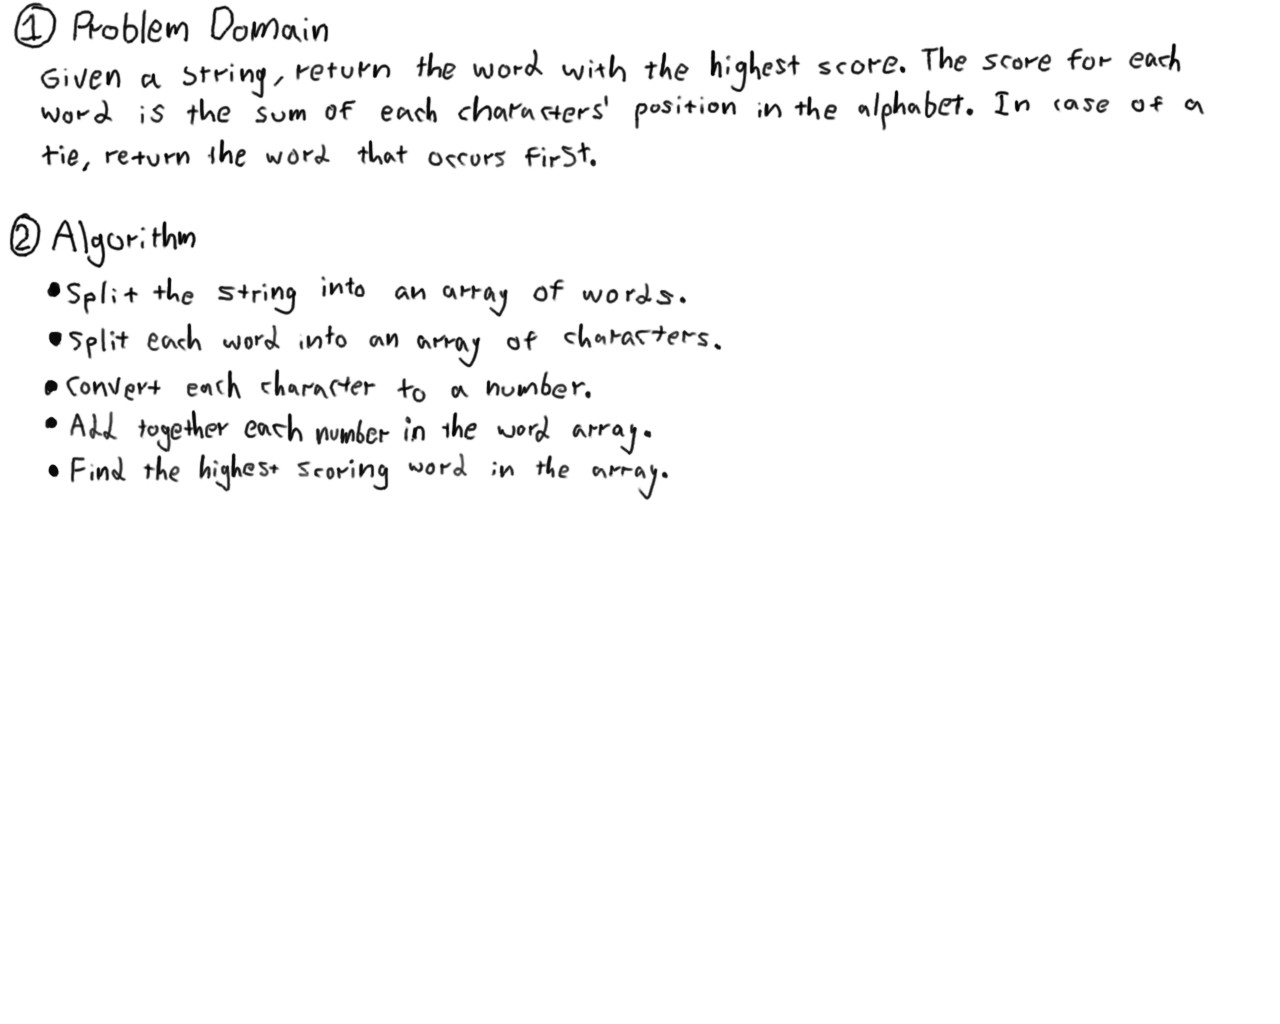 ① Problem Domain
Given a string, return the word with the highest score. The score for each
word is the sum of each characters' position in the alphabet. In case of a
tie, return the word that occurs first.
② Algorithm
• Split the string into an array of words.
• Split each word into an array of characters.
• Convert each character to a number.
• Add together each number in the word array.
• Find the highest scoring word in the array.